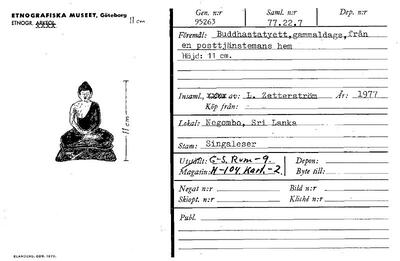 ETNOGRAFISKA MUSEET, Göteborg 11 cm
ETNOGR.
11 cm
ELANDERS, GBR. 1970.
Gen. n:r Saml. n:r Dep. n:r
95263 77.22.7
Föremål: Buddhastatyett, gammaldags, från
en posttjänstemans hem
Höjd: 11 cm.
Insaml. av: L. Zetterström År: 1977
Köp från:
Lokal: Negombo, Sri Lanka
Stam: Singaleser
Utställt: G-S. Rum-9. Depon:
Magasin: H-104. Kart.-2. Byte till:
Negat n:r Bild n:r
Skiopt. n:r Kliché n:r
Publ.